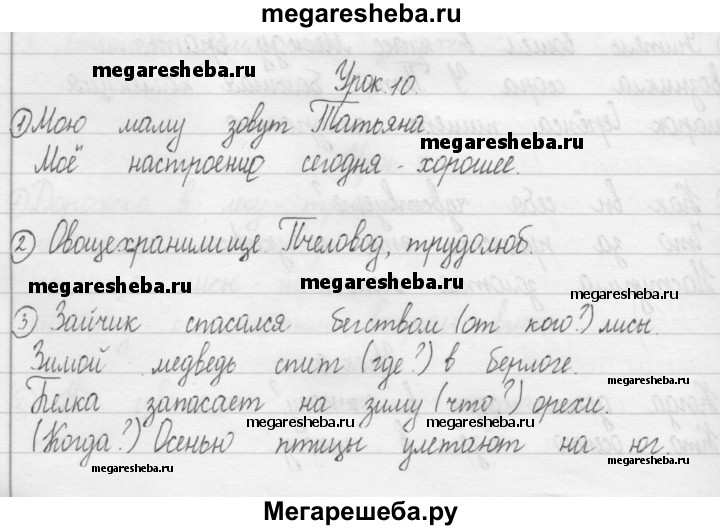 megaresheba.ru
megaresheba.ru
Урок 10.
① Мою маму зовут Татьяна.
megaresheba.ru
Моё настроение сегодня - хорошее.
② Овощехранилище Пчеловод, трудолюб.
megaresheba.ru megaresheba.ru megaresheba.ru
③ Зайчик спасался бегством (от кого?) лисы.
Зимой медведь спит (где?) в берлоге.
megaresheba.ru
Белка запасает на зиму (что?) орехи.
megaresheba.ru megaresheba.ru
(Когда?) Осенью птицы улетают на юг.
megaresheba.ru megaresheba.ru
Мегарешеба.ру